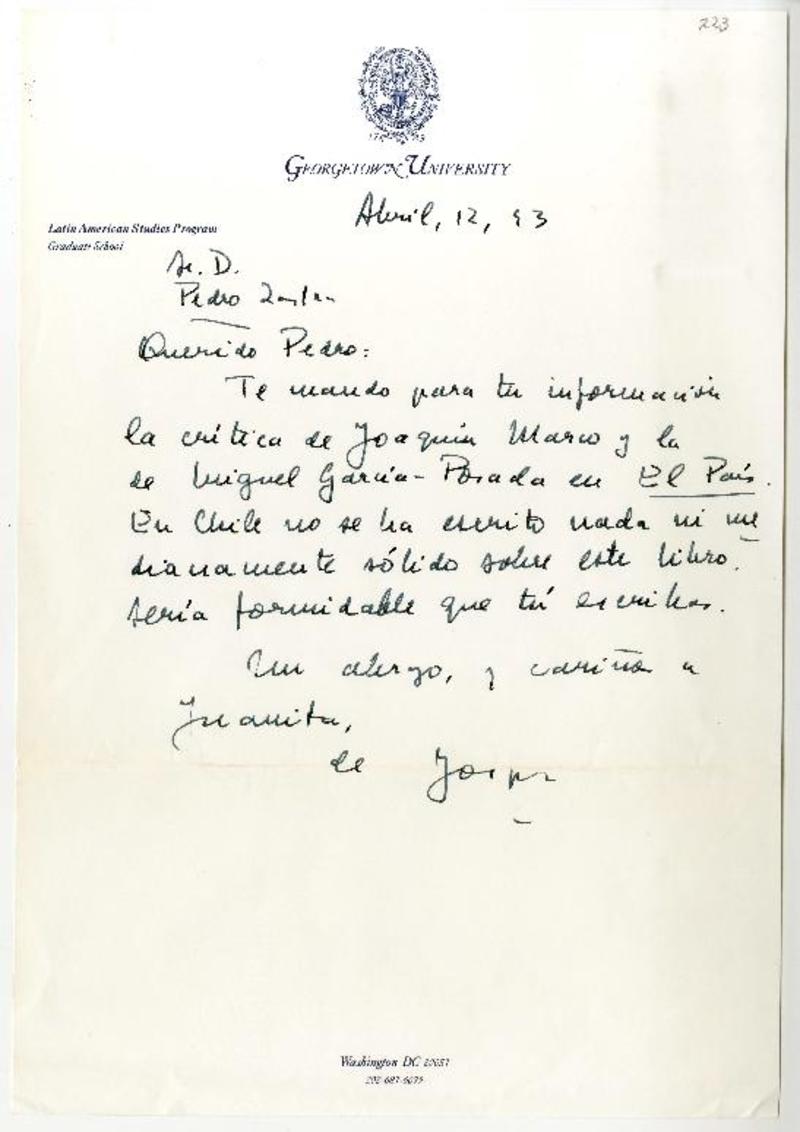 223
GEORGETOWN UNIVERSITY
Abril, 12, 93
Latin American Studies Program
Graduate School
Sr. D.
Pedro Lastra
Querido Pedro:
Te mando para tu información
la crítica de Joaquín Marco y la
de Miguel García-Posada en El País.
En Chile no se ha escrito nada ni me
dianamente sólido sobre este libro.
Sería formidable que tú escribas.
Un abrazo, y cariños a
Juanita,
de Jorge
Washington DC 20057